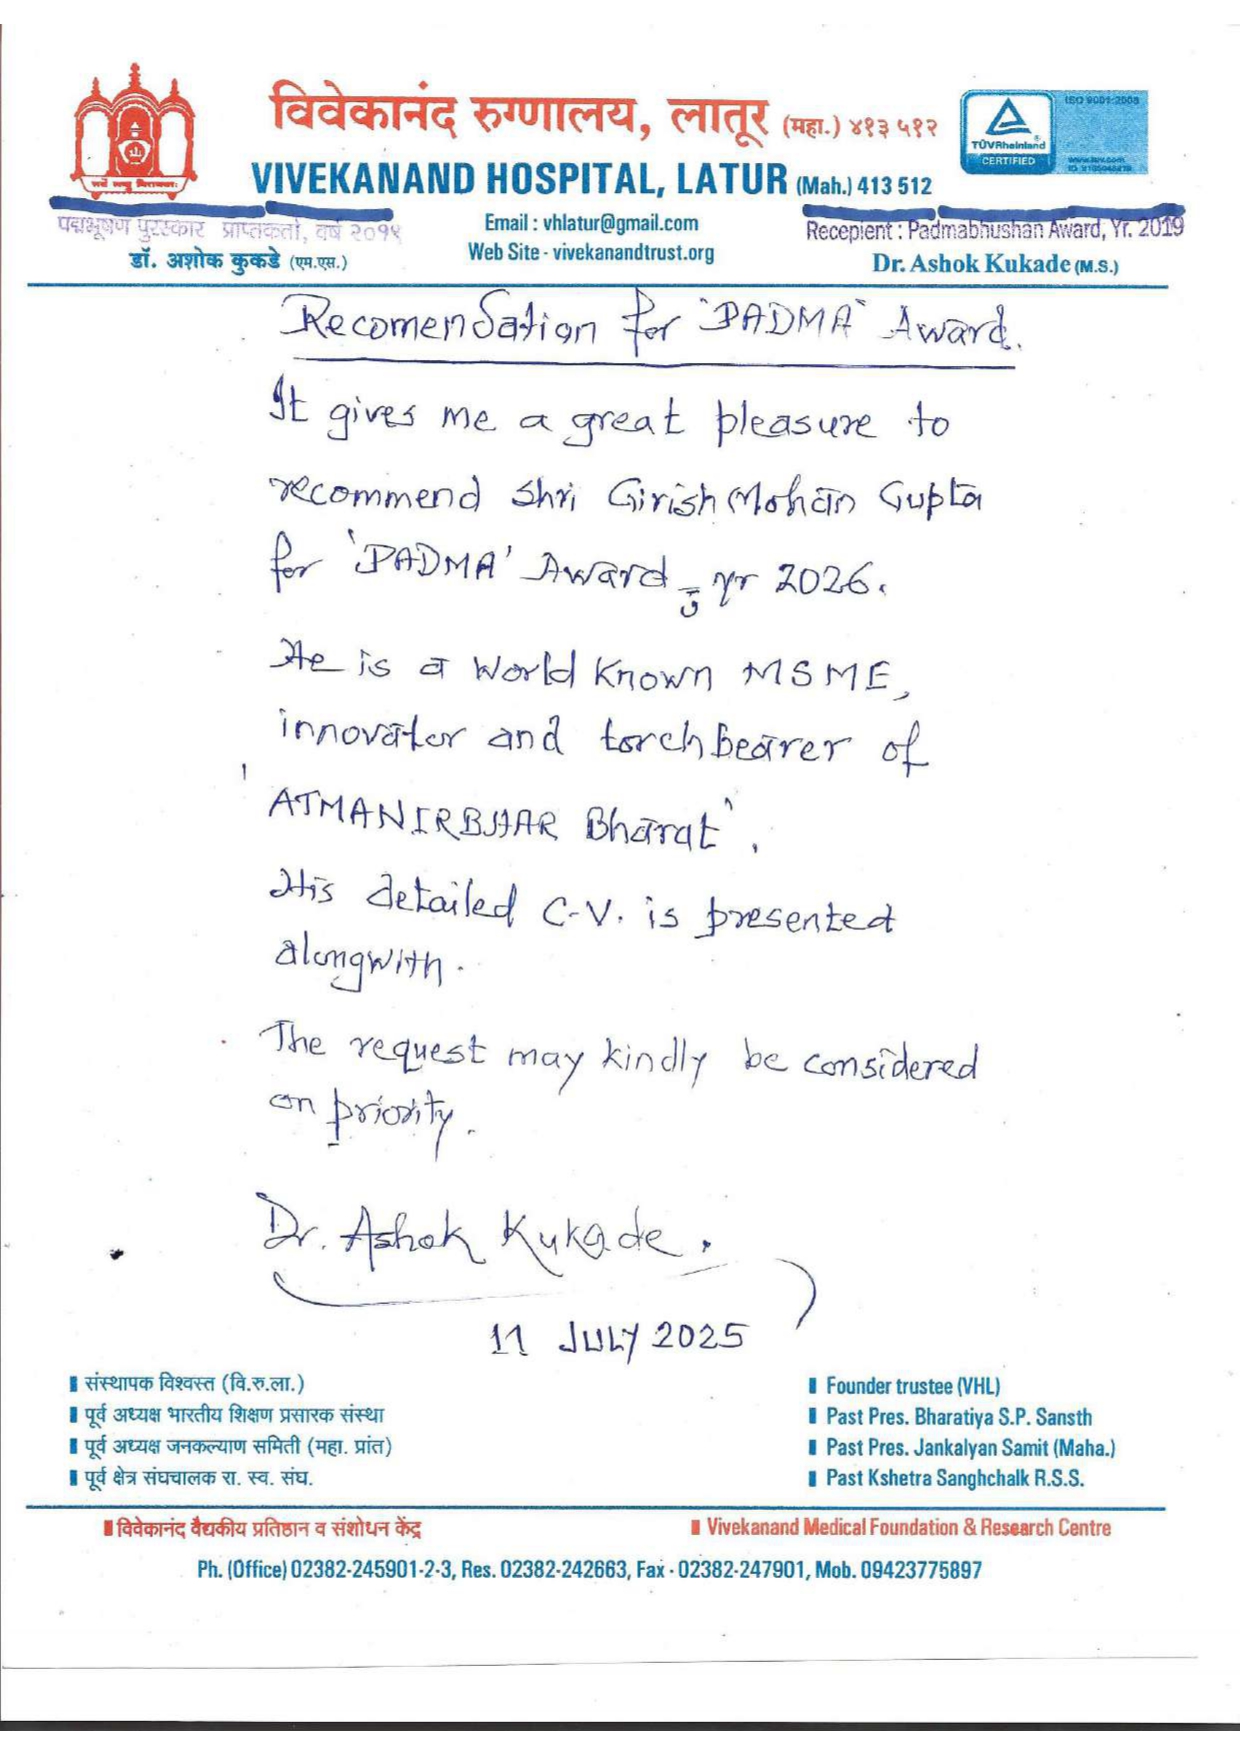 विवेकानंद रुग्णालय, लातूर (महा.) ४१३ ५१२
VIVEKANAND HOSPITAL, LATUR (Mah.) 413 512
ISO 9001:2008
TÜVRheinland
CERTIFIED
www.tuv.com
पद्मभूषण पुरस्कार प्राप्तकर्ता, वर्ष २०१९
डॉ. अशोक कुकडे (एम.एस.)
Email : vhlatur@gmail.com
Web Site - vivekanandtrust.org
Recepient : Padmabhushan Award, Yr. 2019
Dr. Ashok Kukade (M.S.)
Recomendation for 'PADMA' Award.
It gives me a great pleasure to
recommend Shri Girish Mohan Gupta
for 'PADMA' Award - yr 2026.
He is a world known MSME,
innovator and torchbearer of
'ATMANIRBHAR Bharat'.
His detailed C.V. is presented
alongwith.
The request may kindly be considered
on priority.
Dr. Ashok Kukade.
11 JULY 2025
संस्थापक विश्वस्त (वि.रु.ला.)
पूर्व अध्यक्ष भारतीय शिक्षण प्रसारक संस्था
पूर्व अध्यक्ष जनकल्याण समिती (महा. प्रांत)
पूर्व क्षेत्र संघचालक रा. स्व. संघ.
Founder trustee (VHL)
Past Pres. Bharatiya S.P. Sansth
Past Pres. Jankalyan Samit (Maha.)
Past Kshetra Sanghchalk R.S.S.
विवेकानंद वैद्यकीय प्रतिष्ठान व संशोधन केंद्र
Vivekanand Medical Foundation & Research Centre
Ph. (Office) 02382-245901-2-3, Res. 02382-242663, Fax - 02382-247901, Mob. 09423775897